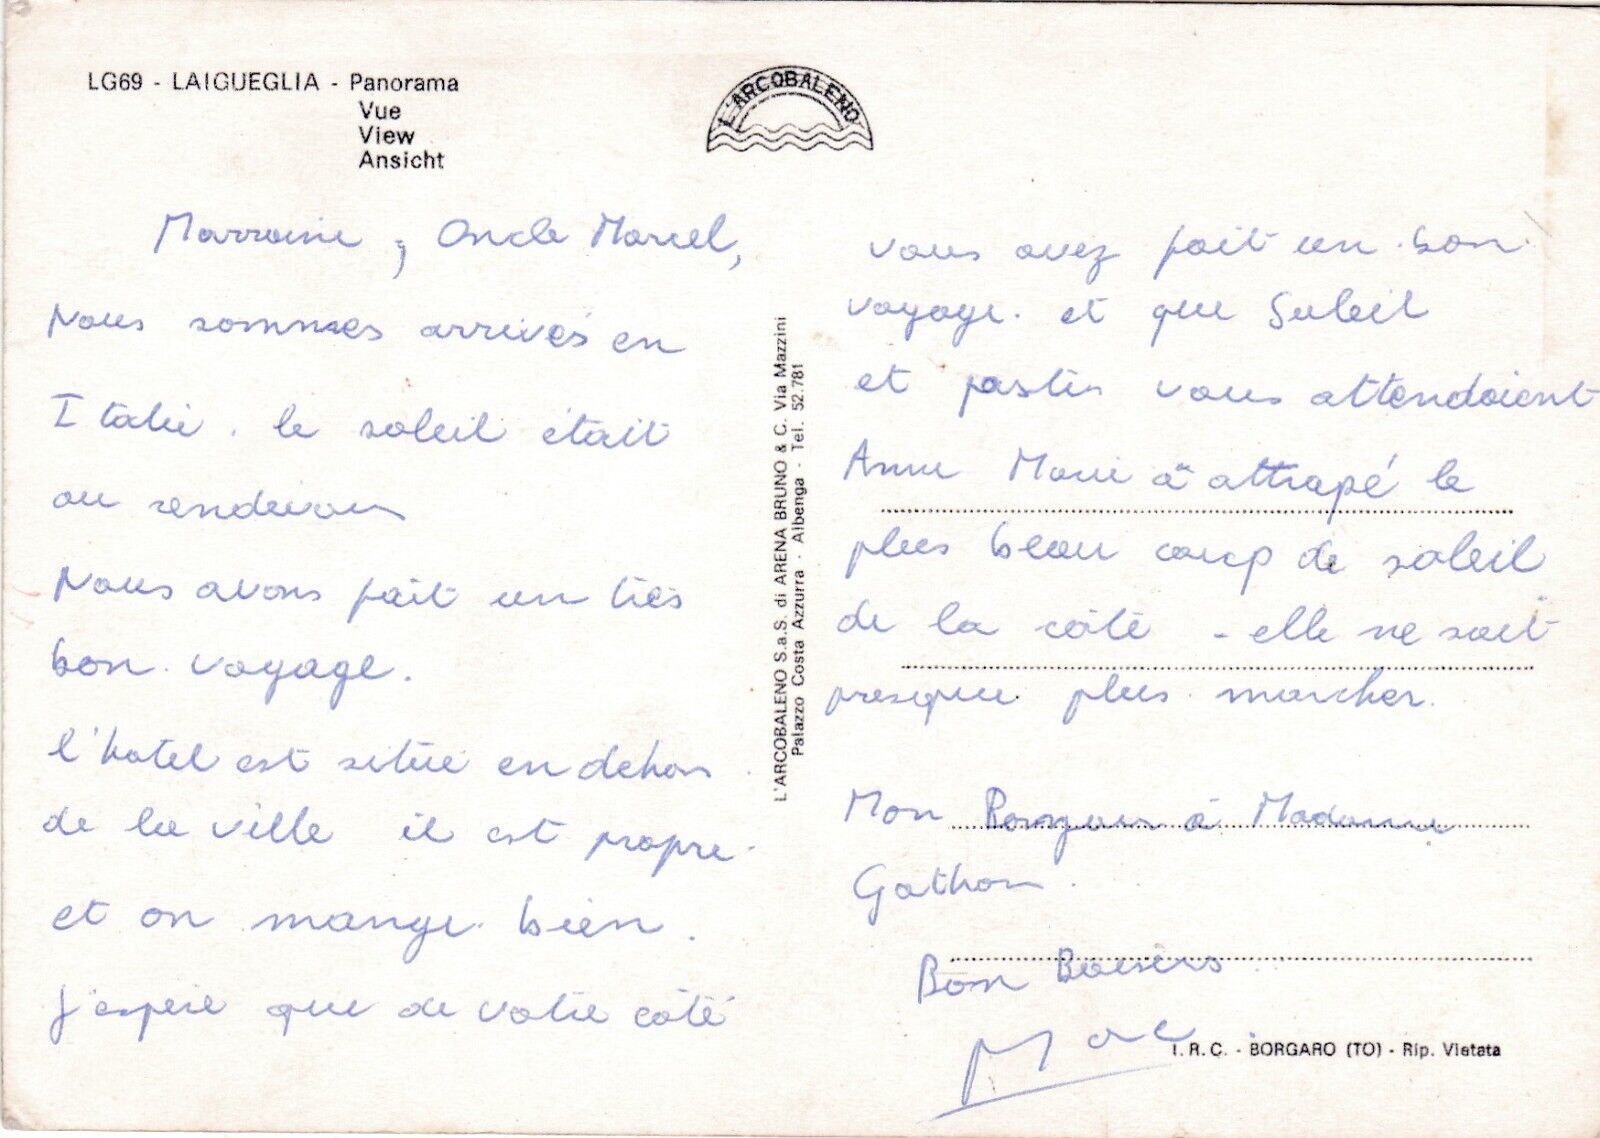 LG69 - LAIGUEGLIA - Panorama
Vue
View
Ansicht
L'ARCOBALENO
Marraine, Oncle Marcel,
Nous sommes arrivés en
Italie. le soleil était
au rendevous
Nous avons fait un très
bon voyage.
l'hotel est située en dehors
de la ville il est propre
et on mange bien.
j'espère que de votre côté
L'ARCOBALENO S.a.S. di ARENA BRUNO & C. Via Mazzini
Palazzo Costa Azzurra - Albenga - Tel. 52.781
vous avez fait un bon
voyage. et que Soleil
et pastis vous attendaient
Anne Marie à attrapé le
plus beau coup de soleil
de la côté - elle ne sait
presque plus marcher.
Mon Bonjour à Madame
Gathon.
Bon Baisers
Marc
I.R.C. - BORGARO (TO) - Rip. Vietata